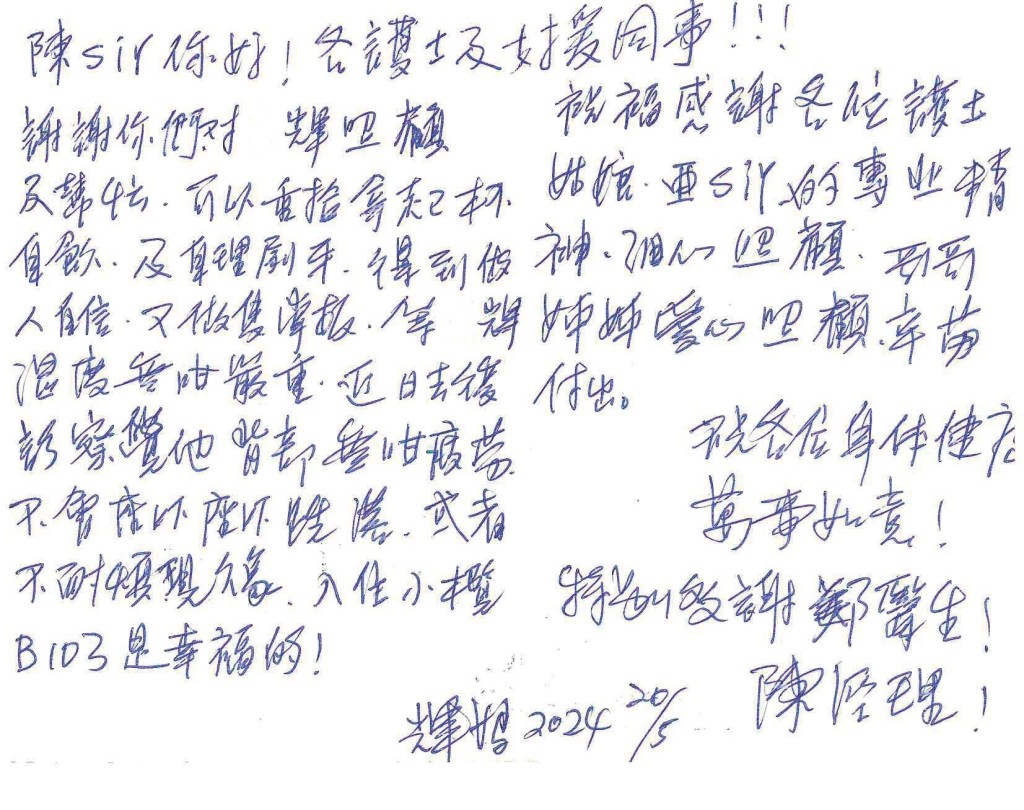 陳sir你好！各護士及支援同事！！！
謝謝你們对 輝照顧
及幫忙. 可以重拾拿起杯
自飲. 及自理刷牙. 得到做
人自信. 又做隻掌板. 令 輝
濕度無咁嚴重. 近日去復
診察覺他 背部無咁疲勞.
不會座吓座吓 或者
不耐煩現象. 入住小欖
B103是幸福的！
祝福感謝各位護士
姑娘. 亜sir的專业精
神. 细心照顧. 哥哥
姊姊愛心照顧. 辛苦
付出。
祝各位身体健康
萬事如意！
特別多謝鄭醫生！
陳经理！
輝媽 2024 20/5